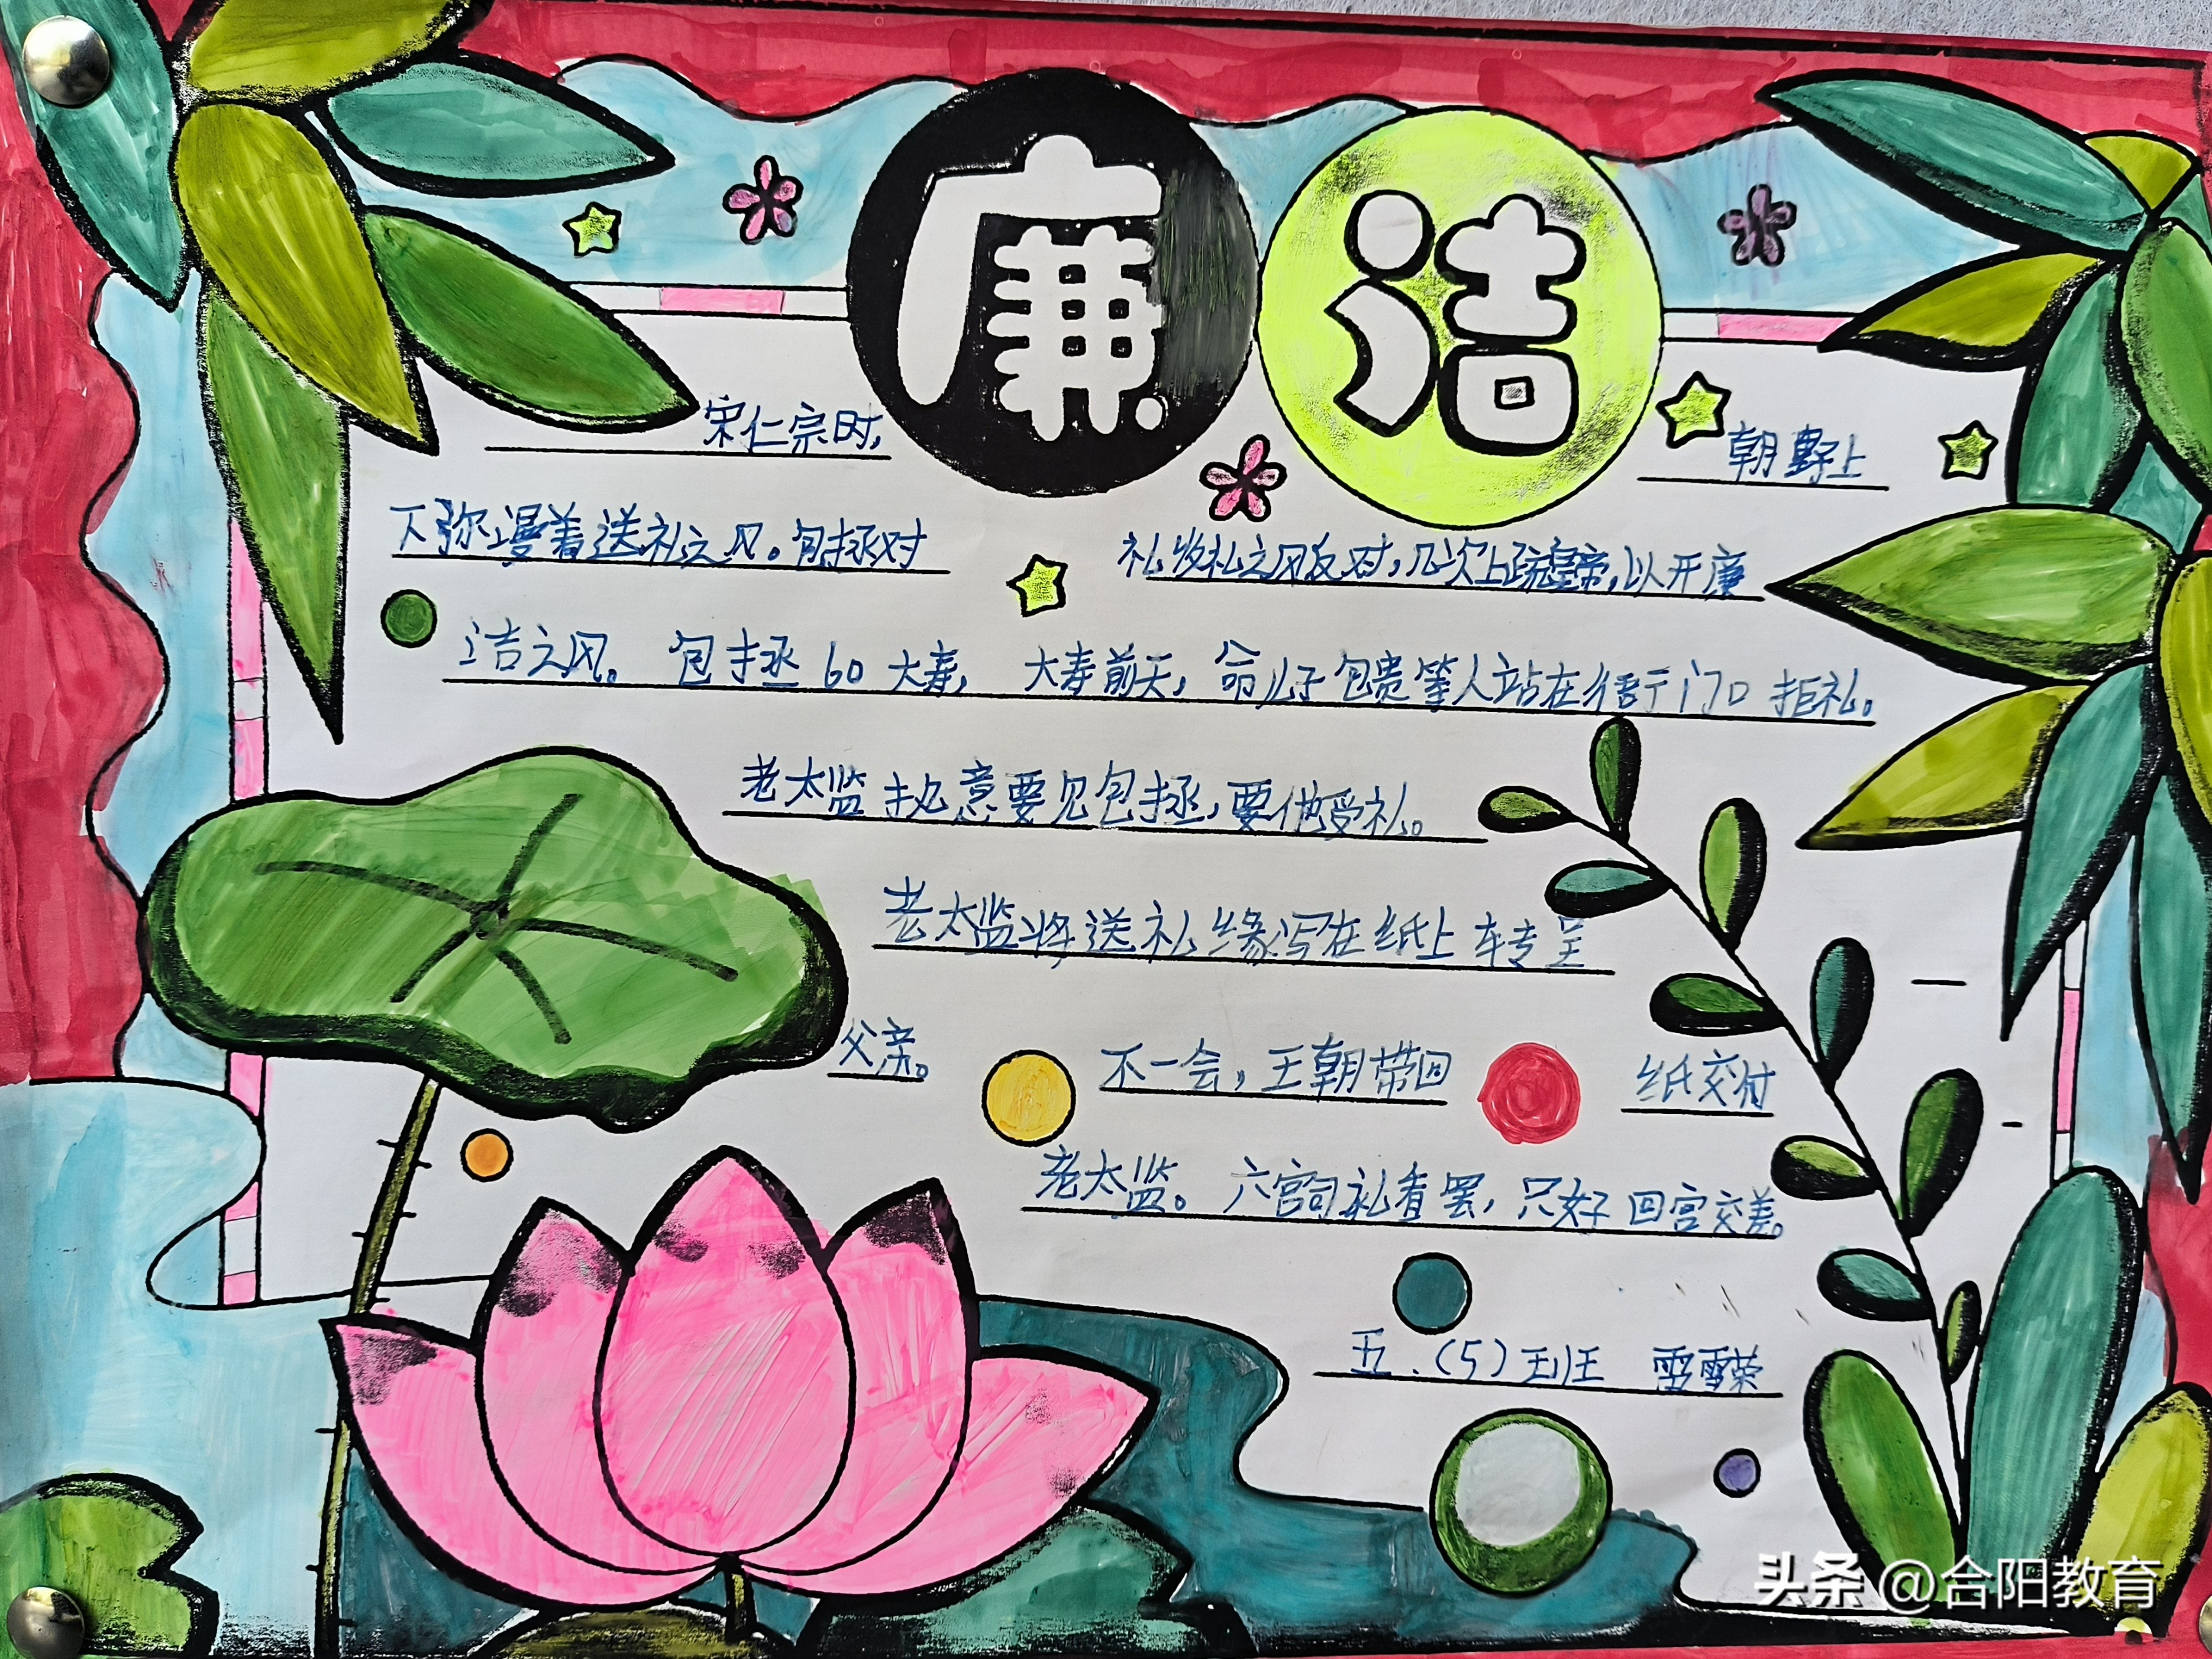 廉洁
宋仁宗时, 朝野上
下弥漫着送礼之风。包拯对 礼收礼之风反对,几次上疏皇帝,以开廉
洁之风。包拯60大寿, 大寿前天,命儿子包贵等人站在衙门口拒礼。
老太监执意要见包拯,要他受礼。
老太监将送礼缘写在纸上转呈
父亲。 不一会,王朝带回 纸交付
老太监。六宫司礼看罢,只好回宫交差。
五.(5)班 雷雪荣
头条 @合阳教育